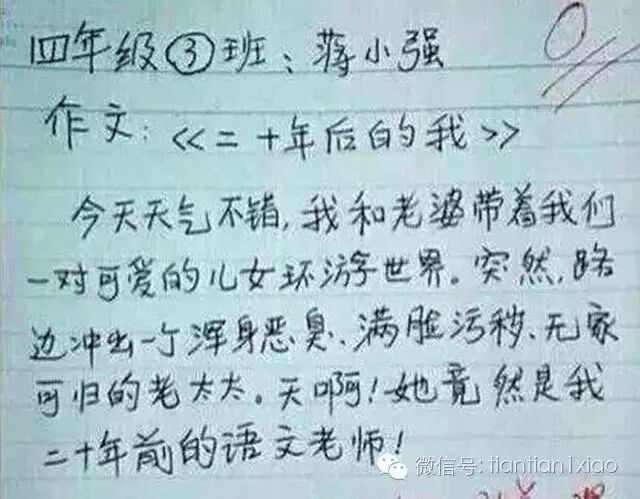 四年级③班：蒋小强
0
作文：<<二十年后的我>>
今天天气不错，我和老婆带着我们
一对可爱的儿女环游世界。突然，路
边冲出一个浑身恶臭、满脸污秽、无家
可归的老太太。天啊！她竟然是我
二十年前的语文老师！
微信号: tiantian1xiao